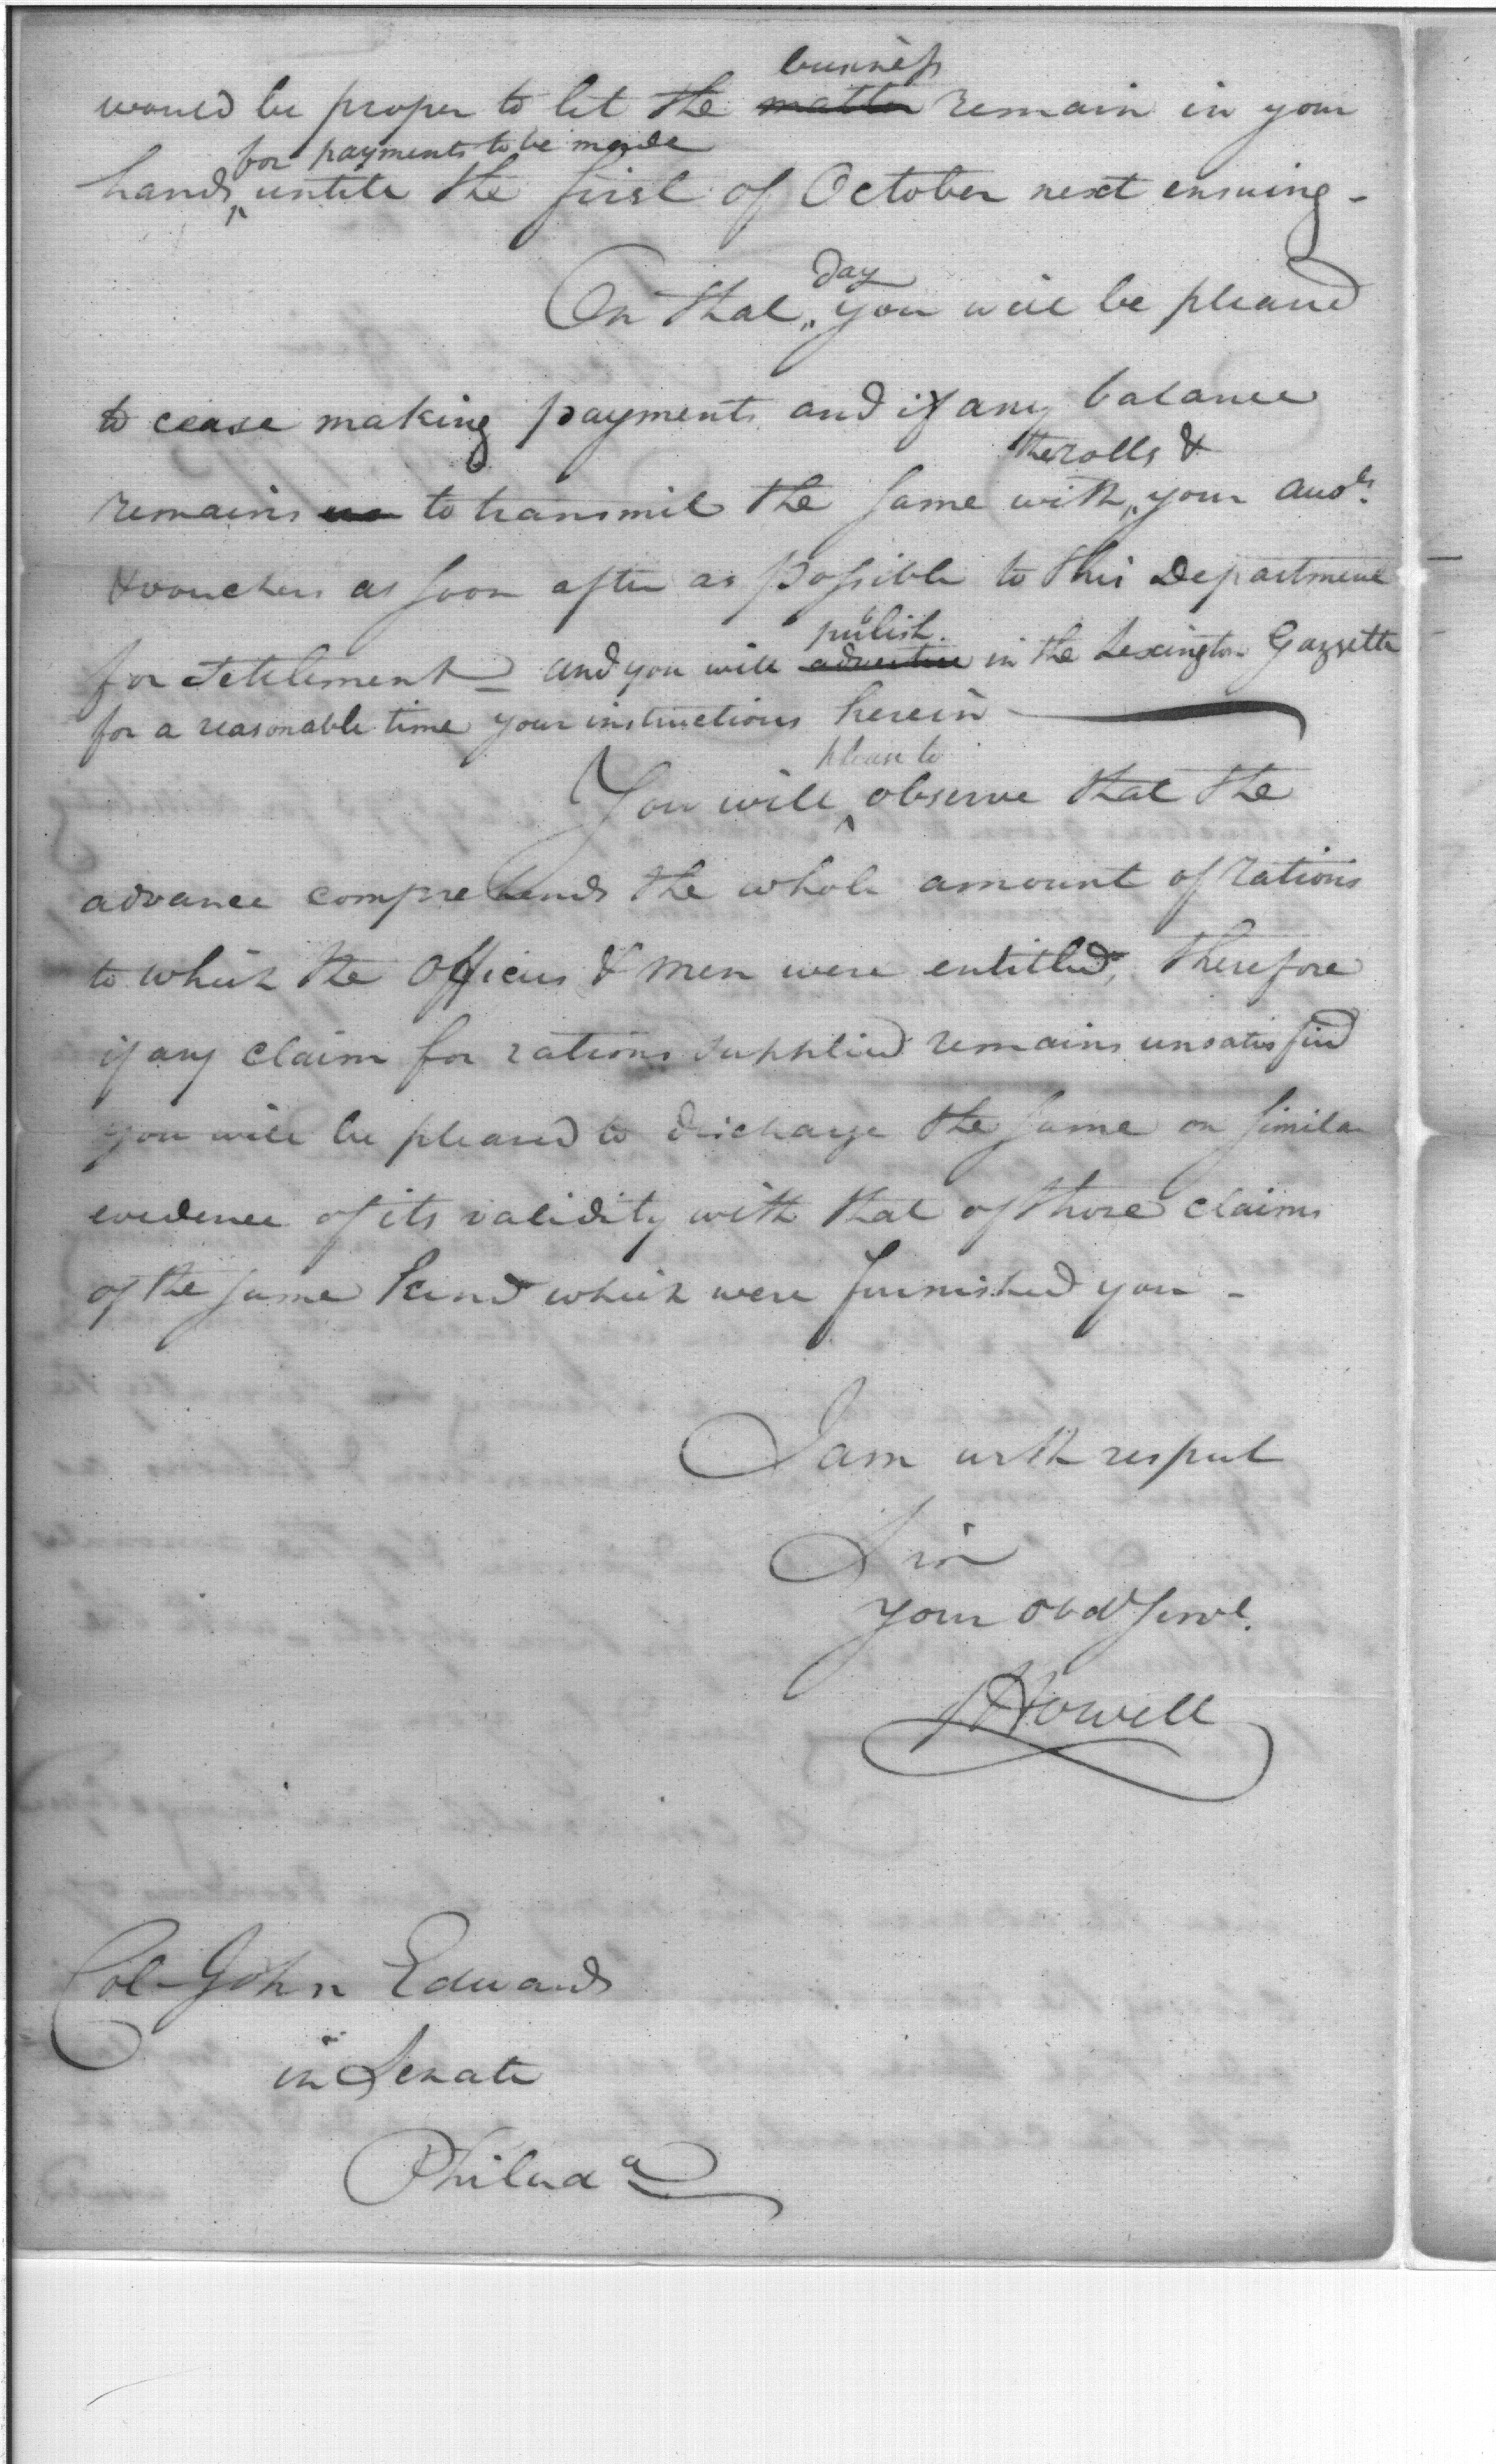 business
would be proper to let the matter remain in your
for payments to be made
hands untill the first of October next ensuing -
day
On that you will be pleased
to cease making payments and if any balance
the rolls &
remains to transmit the same with your
& vouchers as soon after as possible to this Department
publish
for settlement - and you will advertise in the Lexington Gazzette
for a reasonable time your instructions herein -
please to
You will observe that the
advance comprehends the whole amount of rations
to which the Officers & men were entitled, therefore
if any claim for rations supplied remains unsatisfied
you will be pleased to discharge the same on similar
evidence of its validity with that of those claims
of the same kind which were furnished you -
I am with respect
Sir
your obdt servt.
JHowell
Col John Edwards
in Senate
Philada